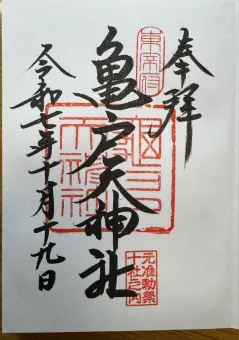 奉拝
東宰府
亀戸天神社
元准勅祭
十社之内
令和七年十月十九日